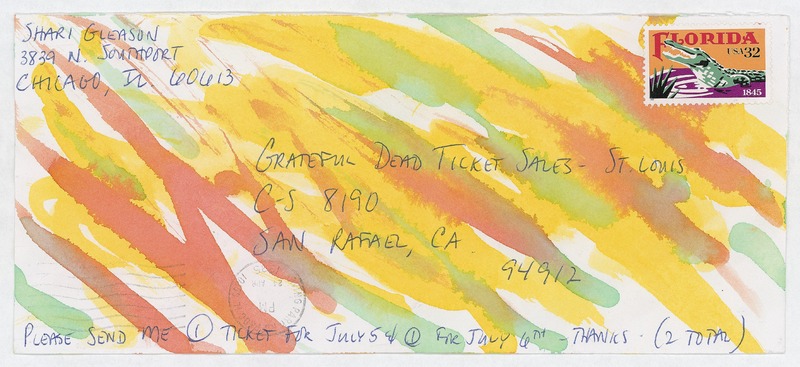 SHARI GLEASON
3839 N. SOUTHPORT
CHICAGO, IL 60613
FLORIDA
USA 32
1845
GRATEFUL DEAD TICKET SALES - ST. LOUIS
C-S 8190
SAN RAFAEL, CA
94912
PLEASE SEND ME ① TICKET FOR JULY 5 & ① FOR JULY 6TH - THANKS - (2 TOTAL)